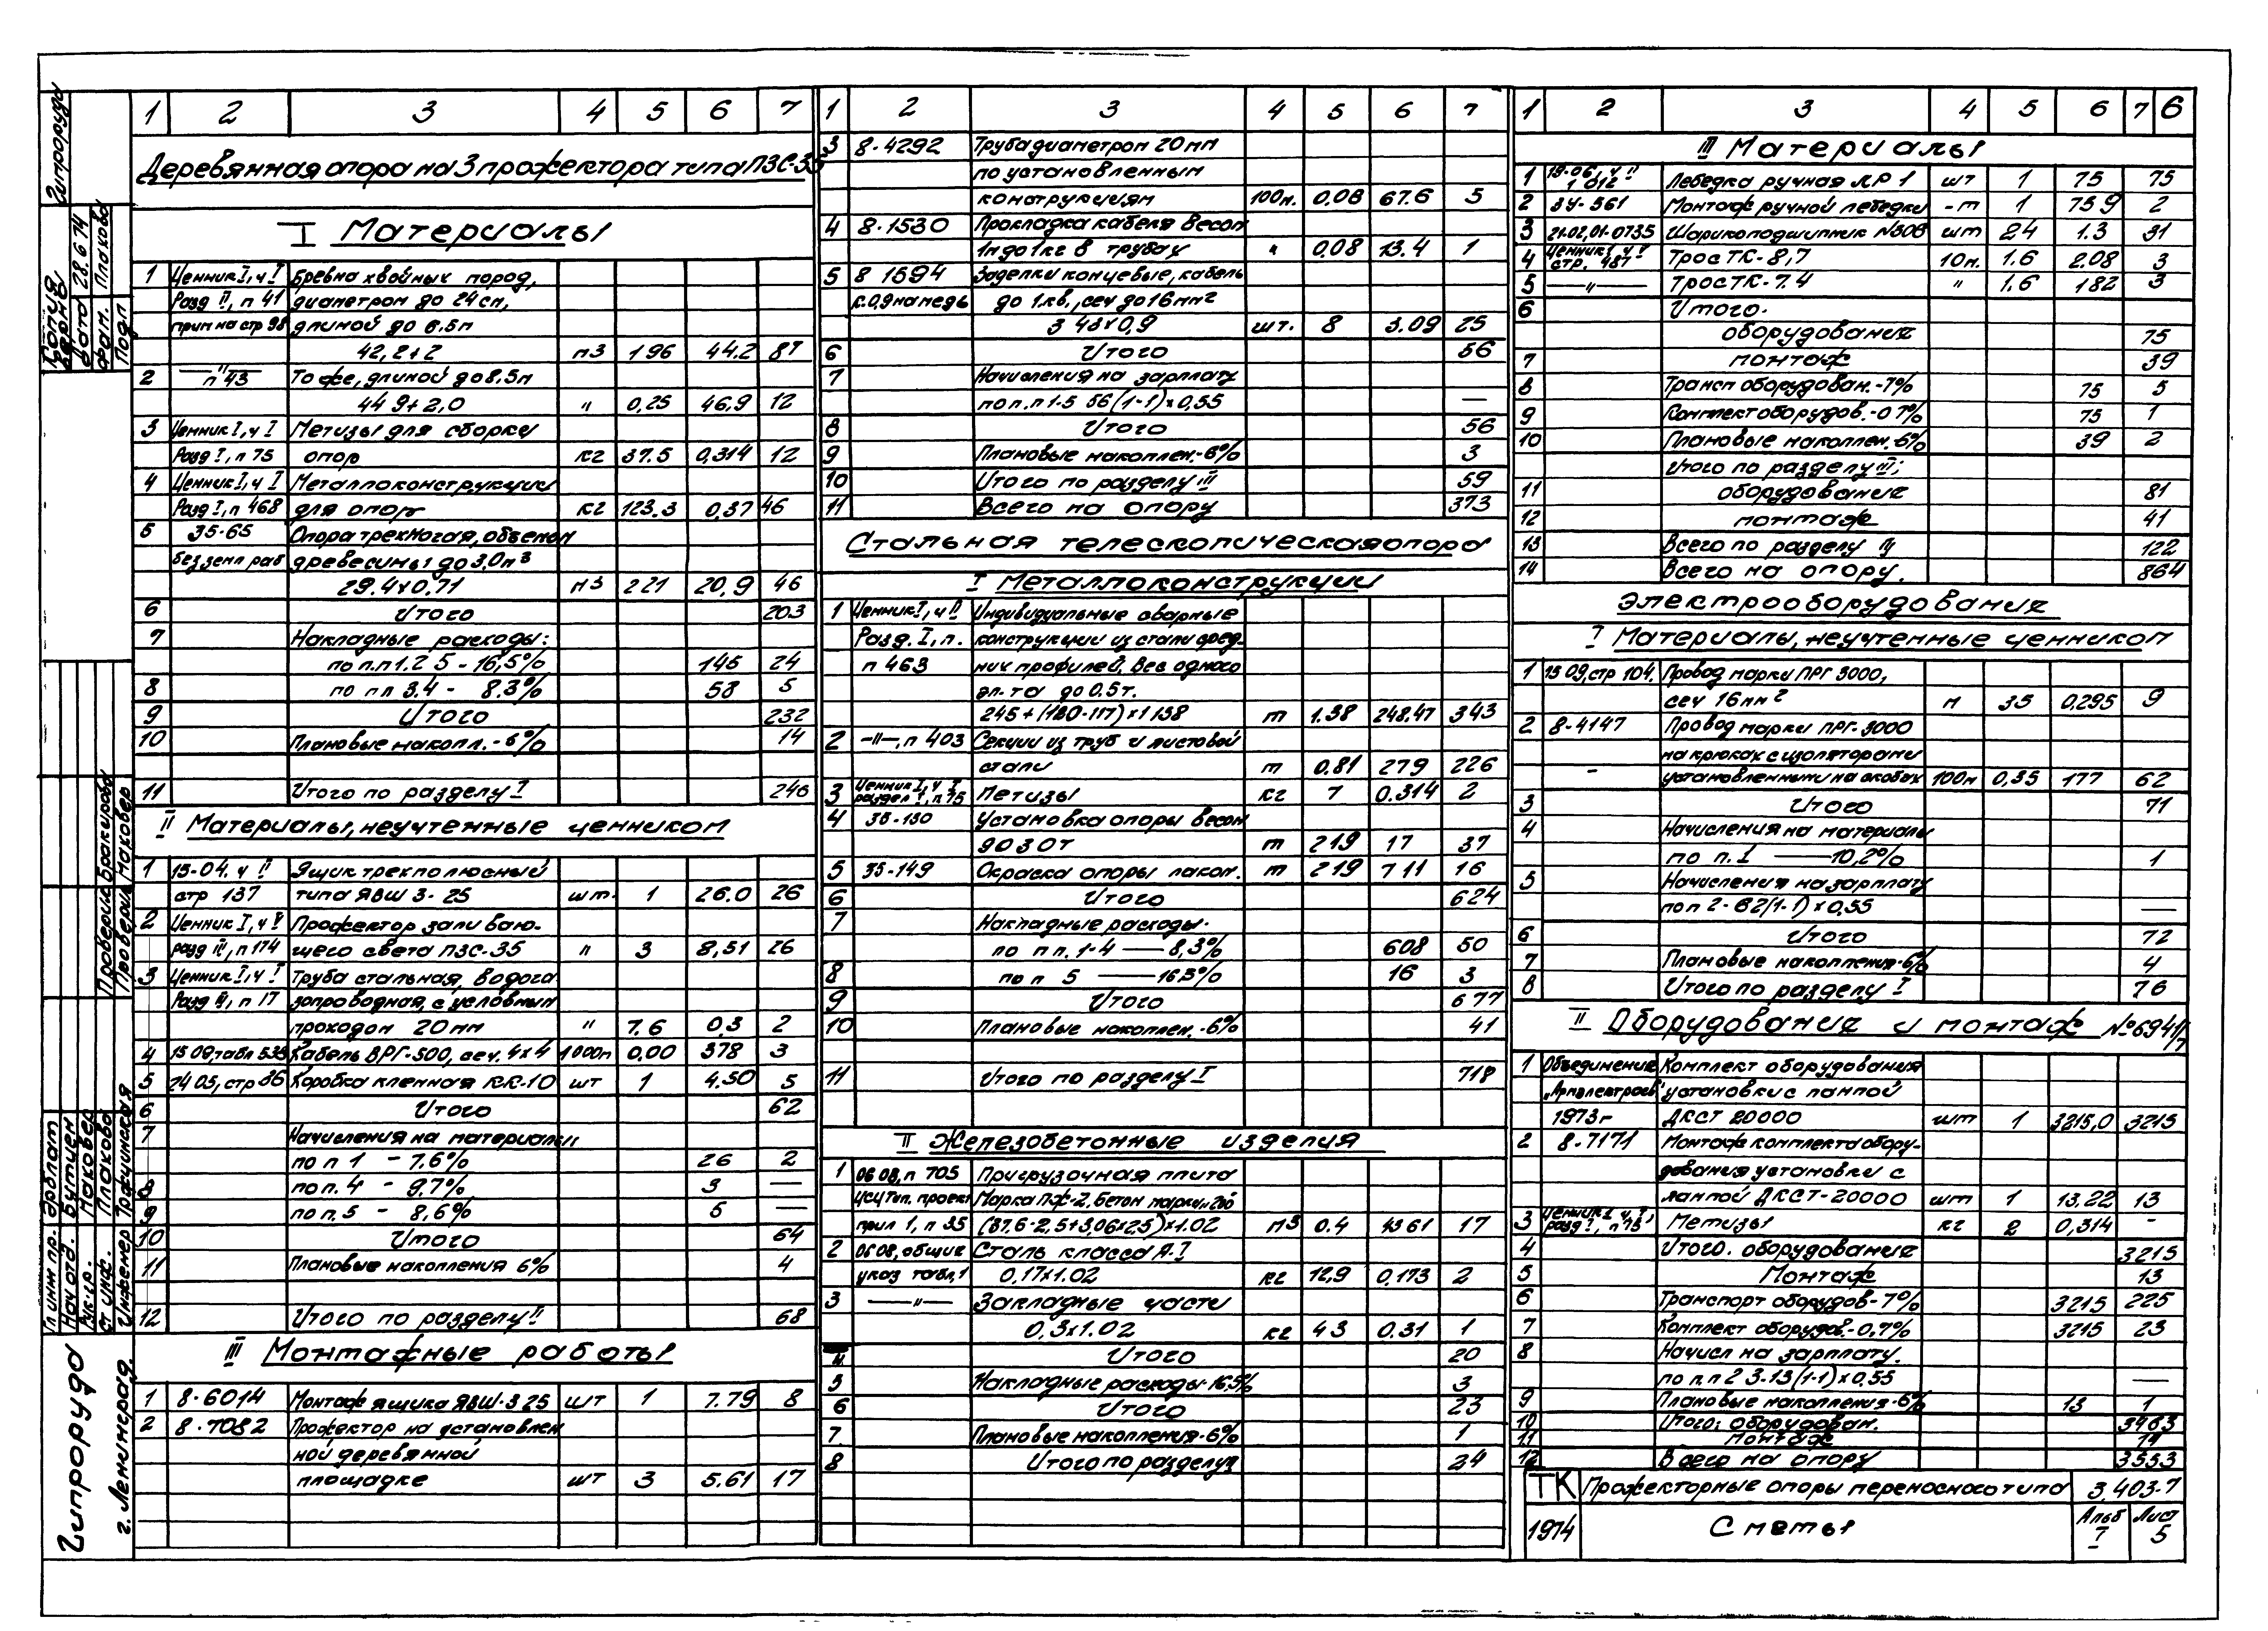 1 2 3 4 5 6 7
Деревянная опора на 3 прожектора типа ПЗС-35
I Материалы
1 Ценник I, ч I Бревна хвойных пород,
Разд II, п 41 диаметром до 24 см,
прим на стр 98 длиной до 6.5 м
42,2+2 м3 1 96 44.2 87
2 —"— п 43 То же, длиной до 8.5 м
44 9+2,0 " 0,25 46,9 12
3 Ценник I, ч I Метизы для сборки
Разд I, п 75 опор кг 37.5 0,314 12
4 Ценник I, ч I Металлоконструкции
Разд I, п 468 для опор кг 123.3 0,37 46
5 35-65 Опора трехногая, объемом
без земл раб древесины до 3,0 м3
29.4х0,71 м3 2 21 20,9 46
6 Итого 203
7 Накладные расходы:
по п.п 1. 2 5 - 16,5% 145 24
8 по пп 3.4 - 8.3% 58 5
9 Итого 232
10 Плановые накопл. - 6% 14
11 Итого по разделу I 246
II Материалы, неучтенные ценником
1 15-04. ч II Ящик трехполюсный
стр 137 типа ЯВШ 3-25 шт. 1 26.0 26
2 Ценник I, ч V Прожектор заливаю-
разд III, п 174 щего света ПЗС-35 " 3 8,51 26
3 Ценник I, ч I Труба стальная, водога
зопроводная, с условным
проходом 20 мм " 7.6 0.3 2
4 15 09, табл 535 Кабель ВРГ-500, сеч. 4х4 1000м 0,00 378 3
5 24 05, стр 86 Коробка клемная КК-10 шт 1 4.50 5
6 Итого 62
7 Начисления на материалы
по п 1 - 7.6% 26 2
8 по п. 4 - 9.7% 3 —
9 по п. 5 - 8,6% 5 —
10 Итого 64
11 Плановые накопления 6% 4
12 Итого по разделу II 68
III Монтажные работы
1 8-6014 Монтаж ящика ЯВШ-3 25 шт 1 7.79 8
2 8-7082 Прожектор на установлен
ной деревянной
площадке шт 3 5.61 17
1 2 3 4 5 6 7
3 8-4292 Труба диаметром 20 мм
по установленным
конструкциям 100м. 0.08 67.6 5
4 8-1530 Прокладка кабеля весом
1м до 1 кг в трубах " 0.08 13.4 1
5 8 1594 Заделки концевые, кабель
к.0,9 на медь до 1 кв., сеч до 16 мм2
3 43х0,9 шт. 8 3.09 25
6 Итого 56
7 Начисления на зарплату
по п. п 1-5 56(1-1)х0,55 —
8 Итого 56
9 Плановые накоплен. - 6% 3
10 Итого по разделу III 59
11 Всего на опору 373
Стальная телескопическая опора
I Металлоконструкции
1 Ценник I, ч II Индивидуальные сварные
Разд. I, п. конструкции из стали сред-
п 463 них профилей, вес одного
эл-та до 0.5 т.
245+(120-117)х1 158 т 1.38 248.47 343
2 —"—, п 403 Секции из труб и листовой
стали т 0.81 279 226
3 Ценник I, ч I раздел I, п 75 Метизы кг 7 0.314 2
4 35-130 Установка опоры весом
до 3 0 т т 2 19 17 37
5 35-149 Окраска опоры лаком. т 2 19 7 11 16
6 Итого 624
7 Накладные расходы.
по п п. 1-4 — 8,3% 608 50
8 по п 5 — 16,5% 16 3
9 Итого 677
10 Плановые накоплен. - 6% 41
11 Итого по разделу I 718
II Железобетонные изделия
1 06 08, п 705 Пригрузочная плита
ЦСЦ Тип. проект Марка ПЖ-2, бетон марки 200
прил 1, п 35 (37.6-2,5+3,06х2,5)х1.02 м3 0.4 43 61 17
2 06 08, общие Сталь класса А-I
указ табл, 1 0,17х1.02 кг 12,9 0,173 2
3 —"— Закладные части
0,3х1.02 кг 4 3 0.31 1
4 Итого 20
5 Накладные расходы - 16,5% 3
6 Итого 23
7 Плановые накопления - 6% 1
8 Итого по разделу 24
1 2 3 4 5 6 7 6
III Материалы
1 19-06, ч II 1 012 Лебедка ручная ЛР 1 шт 1 75 75
2 34-361 Монтаж ручной лебедки -т 1 75 9 2
3 21-02,01-0735 Шарикоподшипник N 308 шт 24 1.3 31
4 Ценник I, ч V стр. 487 Трос ТК-8,7 10м. 1.6 2.08 3
5 —"— Трос ТК-7.4 " 1.6 1 82 3
6 Итого.
оборудование 75
7 монтаж 39
8 Трансп оборудован. - 7% 75 5
9 Комплект оборудов. - 0 7% 75 1
10 Плановые накоплен. 6% 39 2
Итого по разделу III;
11 оборудование 81
12 монтаж 41
13 Всего по разделу 122
14 Всего на опору. 864
Электрооборудование
I Материалы, неучтенные ценником
1 15 09, стр 104. Провод марки ПРГ 3000,
сеч 16 мм2 м 35 0,295 9
2 8-4147 Провод марки ПРГ-3000
на крюках с изоляторами
установленными на скобах 100м 0,35 177 62
3 Итого 71
4 Начисления на материалы
по п. 1 — 10,2% 1
5 Начисления на зарплату
по п 2 - 62(1-1)х0,55 —
6 Итого 72
7 Плановые накопления - 6% 4
8 Итого по разделу I 76
II Оборудование и монтаж № 6941/7
1 Объединение Комплект оборудования
установки с лампой
1973 г ДКСТ 20000 шт 1 3215,0 3215
2 8-7171 Монтаж комплекта обору-
дования установки с
лампой ДКСТ-20000 шт 1 13,22 13
3 Ценник I, ч I, разд I, п 75 Метизы кг 2 0,314 -
4 Итого. оборудование 3215
5 Монтаж 13
6 Транспорт оборудов - 7% 3215 225
7 Комплект оборудов. - 0,7% 3215 23
8 Начисл на зарплату.
по п. п 2 3-13(1-1)х0,55 —
9 Плановые накопления - 6% 13 1
10 Итого: оборудован. 3463
11 монтаж 14
12 Всего на опору 3553
ТК Прожекторные опоры переносного типа 3.403-7
1974 Сметы Альб I Лист 5
Гипроруда
Копия верна
Дата 28.6 74
Фам. Плахова
Подп
Проверил Бракирова
Проверил Маковер
Гл инж пр. Эрблат
Нач отд. Бутцен
Рук. гр. Маковер
Ст инж. Плахова
Инженер Трасцинская
Гипроруда
г. Ленинград.